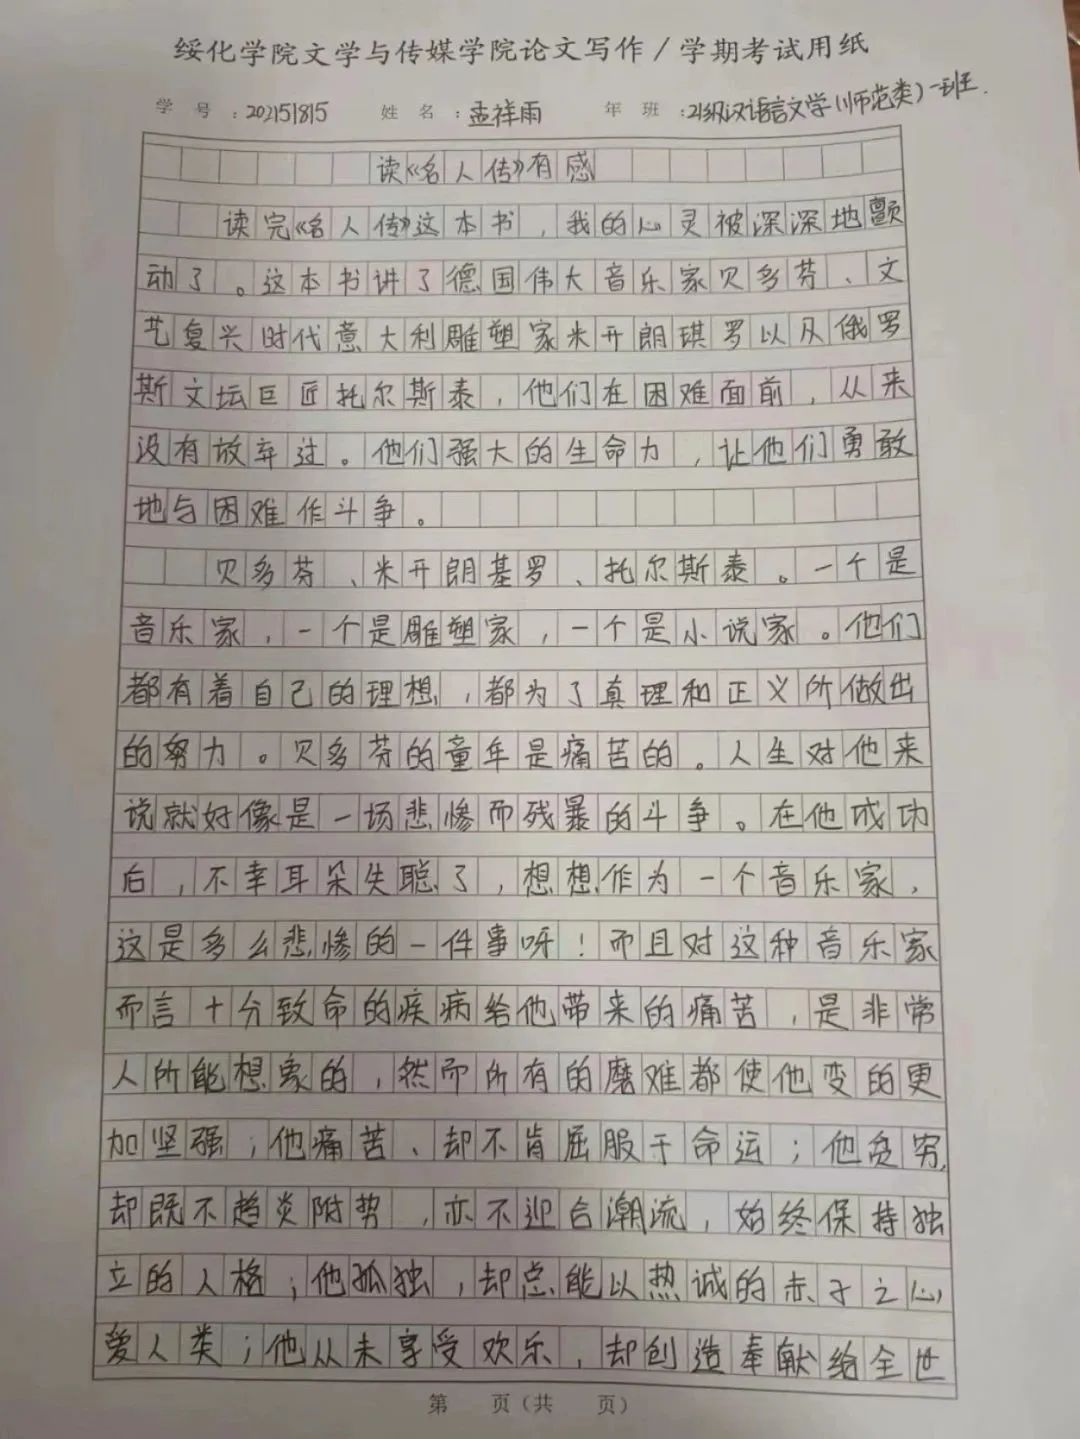 绥化学院文学与传媒学院论文写作/学期考试用纸
学号:202151815 姓名:孟祥雨 年班:21级汉语言文学(师范类)一班.
读《名人传》有感
读完《名人传》这本书,我的心灵被深深地颤
动了。这本书讲了德国伟大音乐家贝多芬、文
艺复兴时代意大利雕塑家米开朗琪罗以及俄罗
斯文坛巨匠托尔斯泰,他们在困难面前,从来
没有放弃过。他们强大的生命力,让他们勇敢
地与困难作斗争。
贝多芬、米开朗基罗、托尔斯泰。一个是
音乐家,一个是雕塑家,一个是小说家。他们
都有着自己的理想,都为了真理和正义所做出
的努力。贝多芬的童年是痛苦的。人生对他来
说就好像是一场悲惨而残暴的斗争。在他成功
后,不幸耳朵失聪了,想想作为一个音乐家,
这是多么悲惨的一件事呀!而且对这种音乐家
而言十分致命的疾病给他带来的痛苦,是非常
人所能想象的,然而所有的磨难都使他变的更
加坚强;他痛苦、却不肯屈服于命运;他贫穷,
却既不趋炎附势,亦不迎合潮流,始终保持独
立的人格;他孤独,却总能以热诚的赤子之心
爱人类;他从未享受欢乐,却创造奉献给全世
第 页(共 页)